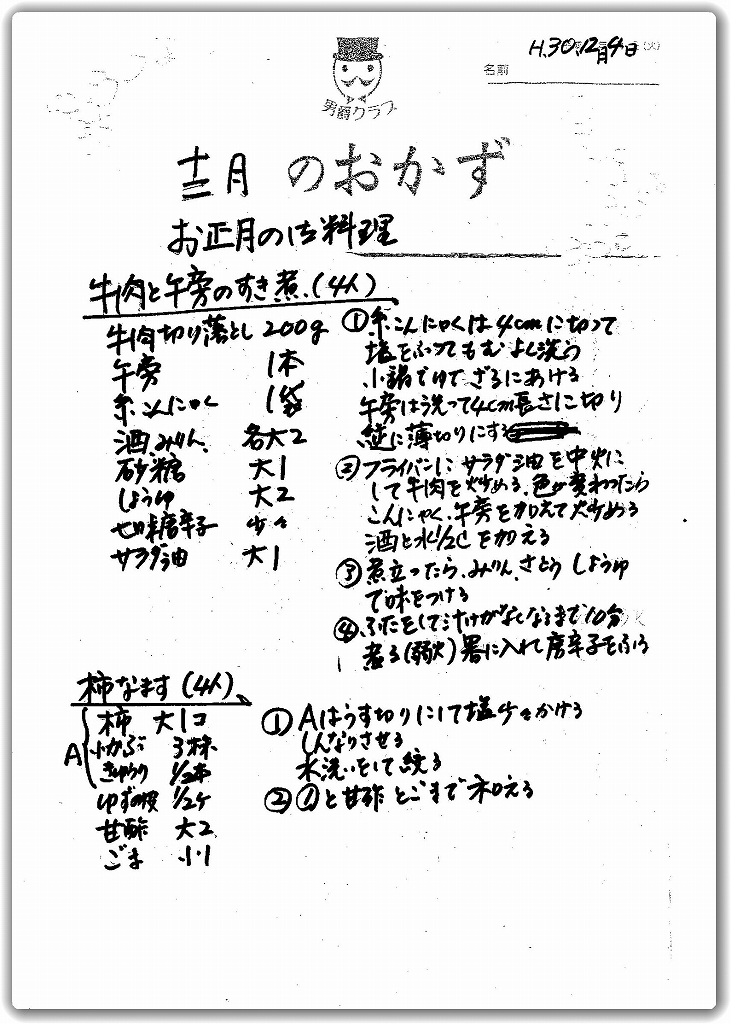 H.30.12月4日(火)
名前
男爵クラブ
十二月 のおかず
お正月のお料理
牛肉と午旁のすき煮.(4人)
牛肉切り落とし 200g
午旁 1本
糸こんにゃく 1袋
酒.みりん. 各大2
砂糖 大1
しょうゆ 大2
七味唐辛子 少々
サラダ油 大1
①糸こんにゃくは4cmに切って
塩をふってもむ よく洗う
小鍋でゆで ざるにあける
午旁は洗って4cm長さに切り
縦に薄切りにする
②フライパンに サラダ油を中火に
して牛肉を炒める.色が変わったら
こんにゃく.午旁を加えて炒める
酒と水1/2Cを加える
③煮立ったら.みりん.さとう しょうゆ
で味をつける
④.ふたをして汁けがなくなるまで10分
煮る(弱火)器に入れ唐辛子をふる
柿なます(4人)
A
柿 大1コ
小かぶ 3株
きゅうり 1/2本
ゆずの皮 1/2ケ
甘酢 大2
ごま 小1
①Aはうす切りにして塩少々かける
しんなりさせる
水洗いをして絞る
②①と甘酢とごまで和える